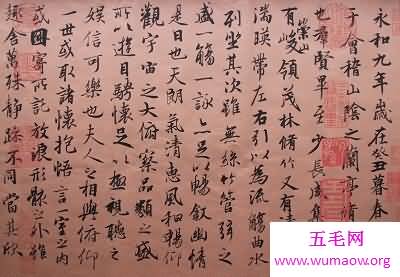 永和九年歲在癸丑暮春
于會稽山陰之蘭亭脩
也群賢畢至少長咸集
有崇山峻領茂林脩竹又有清
湍暎帶左右引以為流觴曲水
列坐其次雖無絲竹管弦之
盛一觴一詠亦足以暢敘幽情
是日也天朗氣清惠風和暢仰
觀宇宙之大俯察品類之盛
所以遊目騁懷足以極視聽之
娛信可樂也夫人之相與俯仰
一世或取諸懷抱悟言一室之內
或因寄所託放浪形骸之外雖
趣舍萬殊靜躁不同當其欣
五毛网
www.wumaow.org